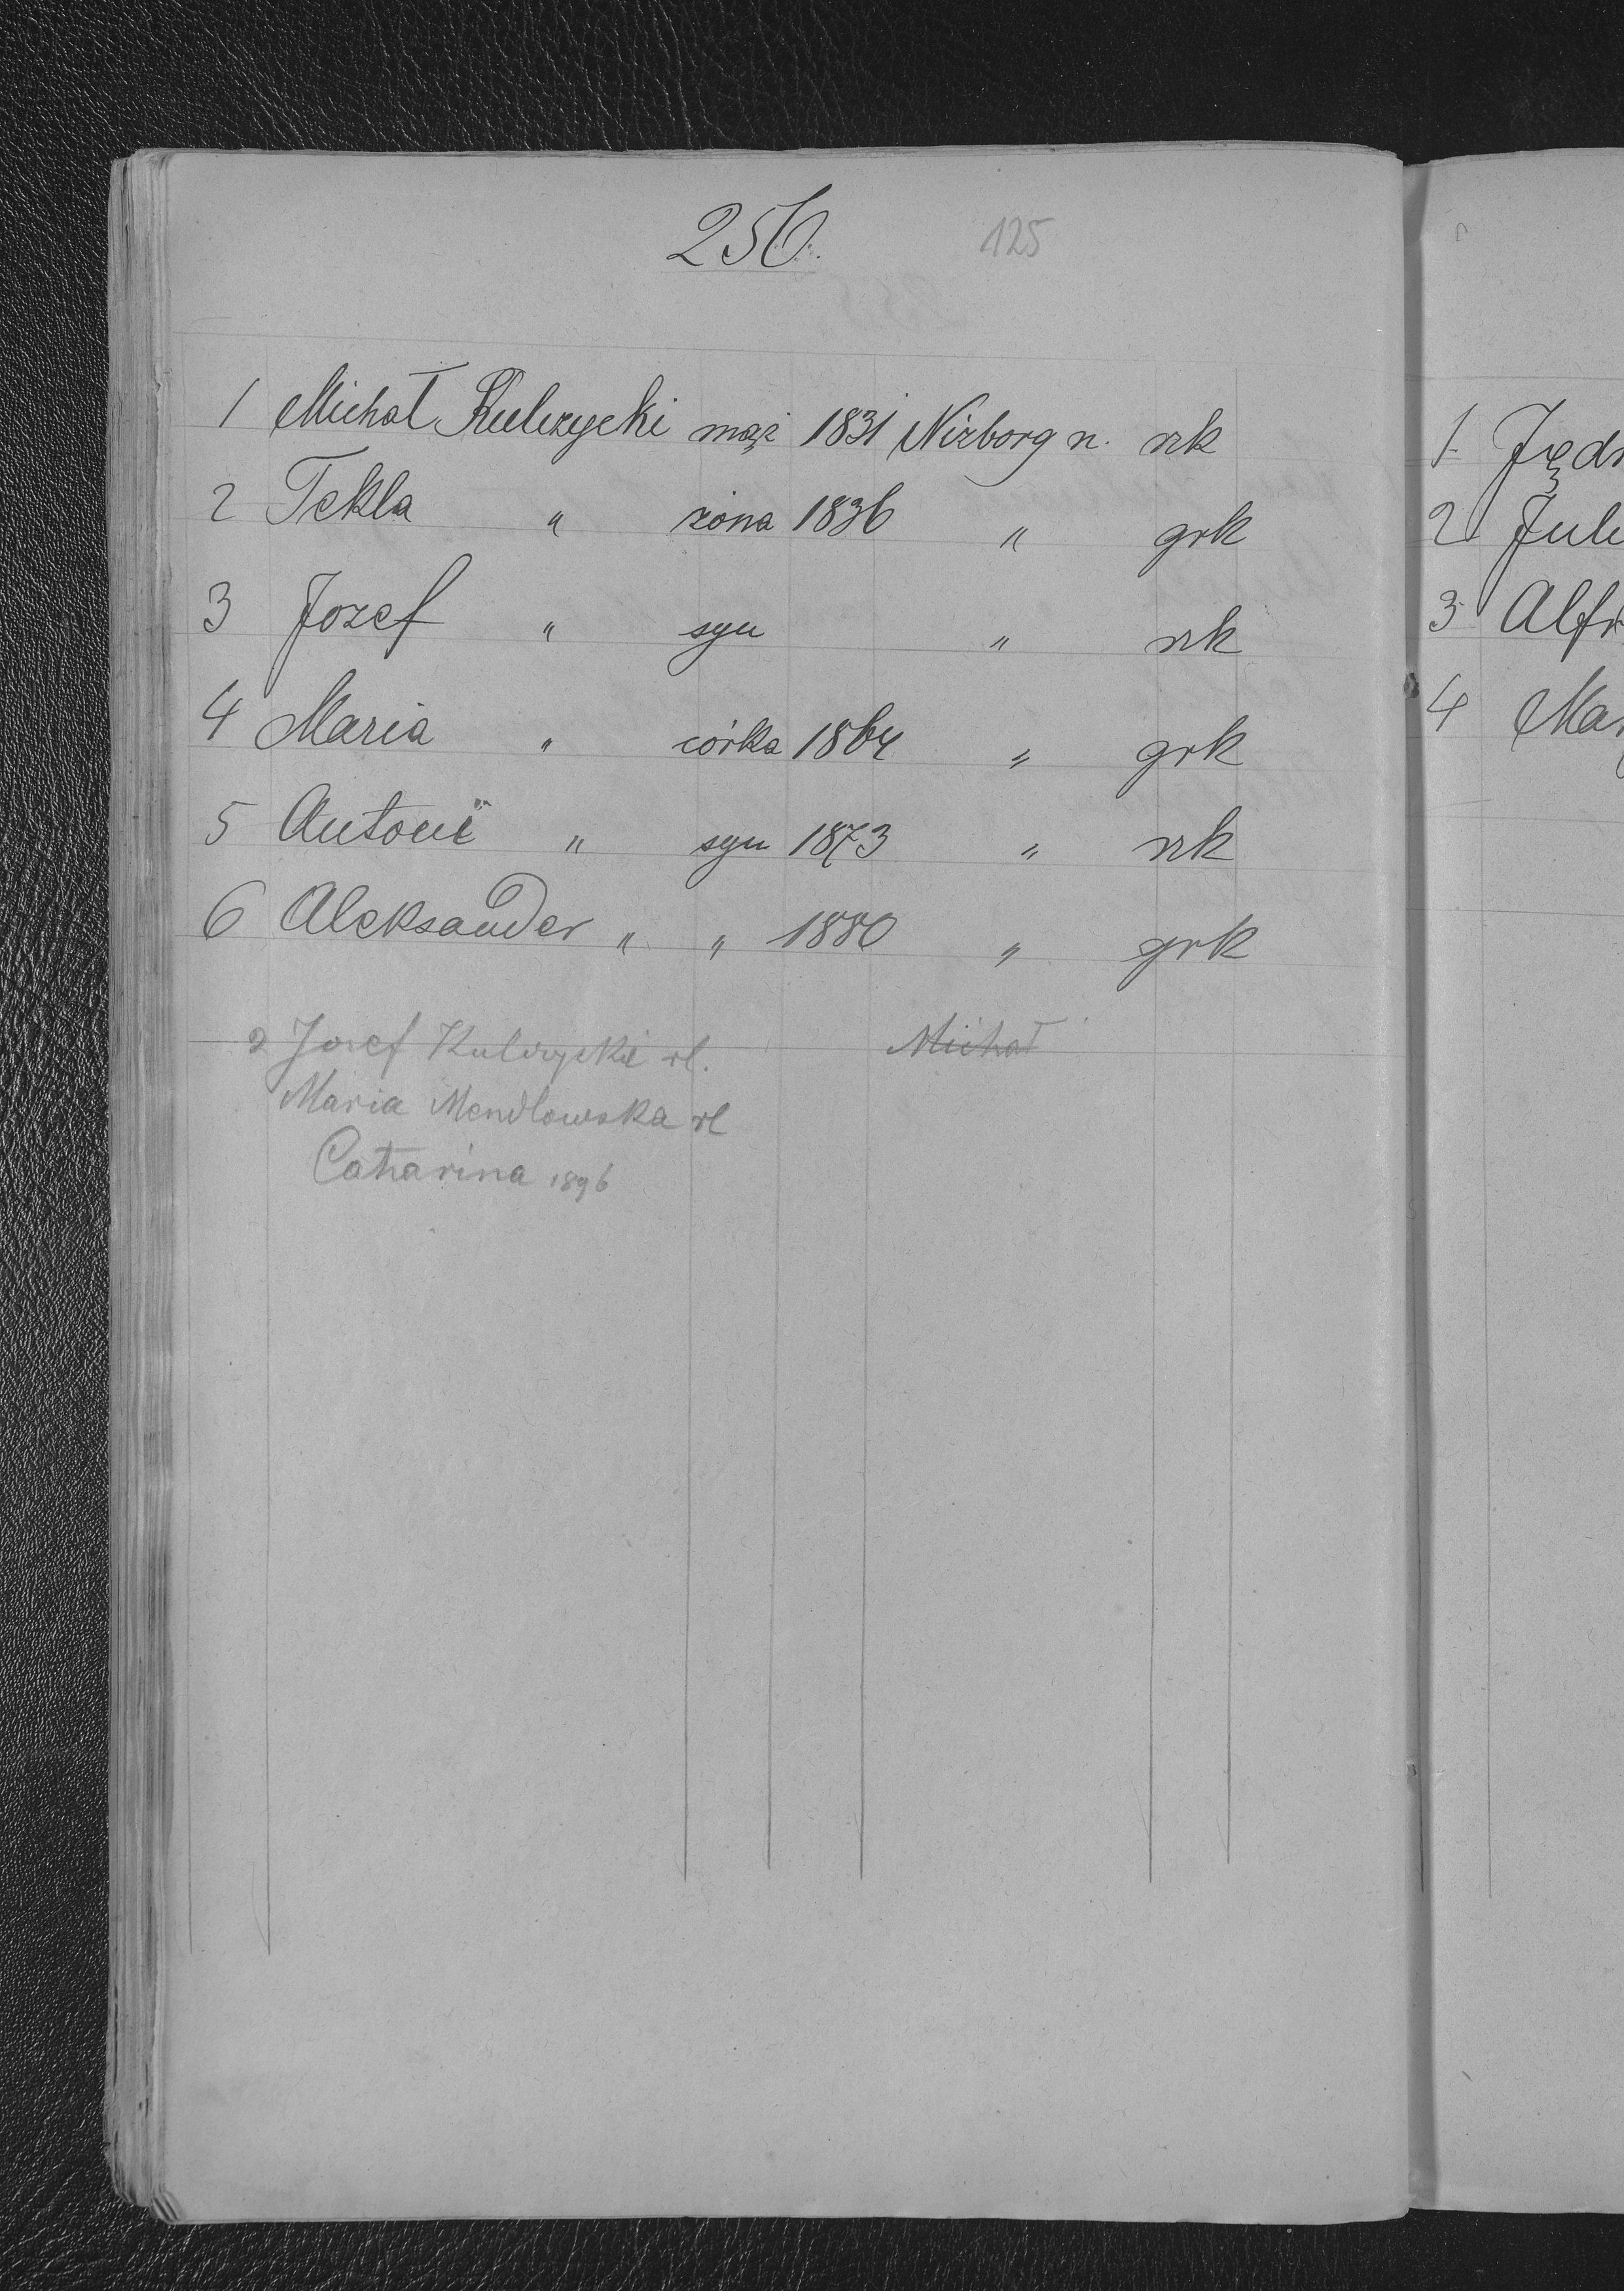 256.
125
1 Michał Kulczycki mąż 1831 Nizborg n. rzk
2 Tekla " żona 1836 " grk
3 Jozef " syn " rzk
4 Maria " córka 1864 " grk
5 Antoni " syn 1873 " rzk
6 Aleksander " " 1880 " grk
2 Josef Kulczycki rl. Michał
Maria Mendlowska rl
Catharina 1896
1.
2
3 Alfr
4 Mar